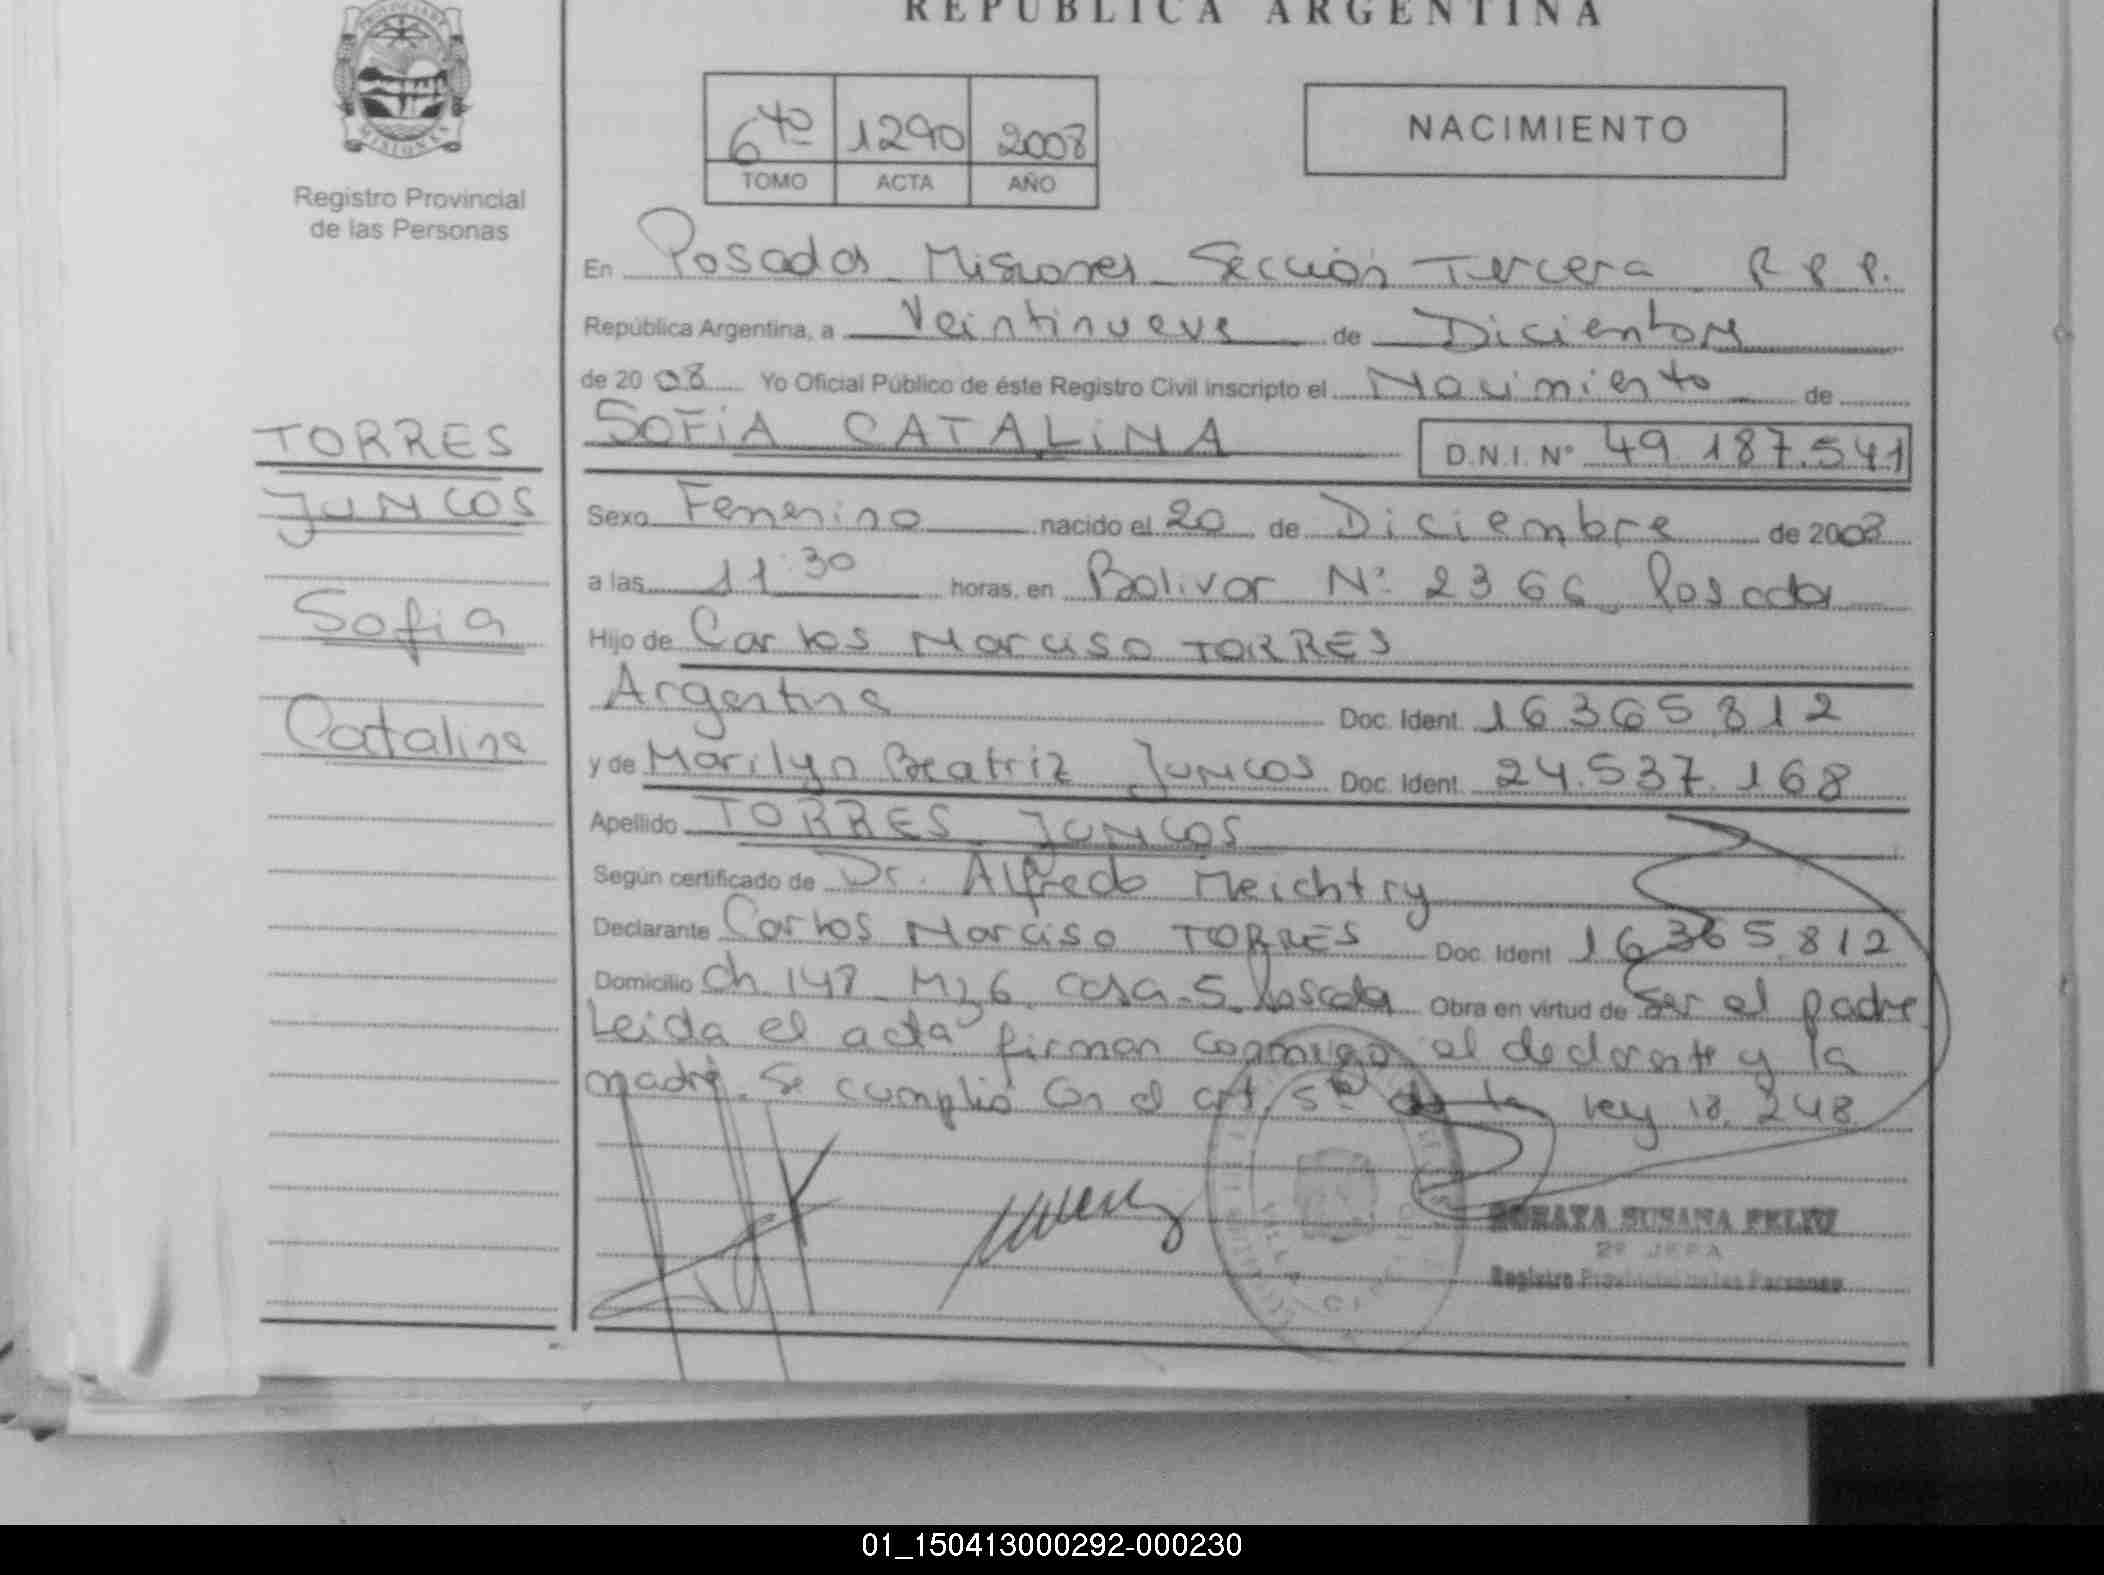 REPUBLICA ARGENTINA
PROVINCIA DE
MISIONES
Registro Provincial
de las Personas
6to 1290 2008
TOMO ACTA AÑO
NACIMIENTO
En Posadas Misiones Sección Tercera R P P.
República Argentina, a Veintinueve de Diciembre
de 2008 Yo Oficial Público de éste Registro Civil inscripto el Nacimiento de
SOFiA CATALiNA D.N.I. N° 49.187.541
Sexo Femenino nacido el 20 de Diciembre de 2008
a las 11:30 horas, en Bolivar N° 2366 Posadas
Hijo de Carlos Narciso TORRES
Argentina Doc. Ident. 16.365.812
y de Marilyn Beatriz JUNCOS Doc. Ident. 24.537.168
Apellido TORRES JUNCOS
Según certificado de Dr. Alfredo Meichtry
Declarante Carlos Narciso TORRES Doc. Ident 16.365.812
Domicilio Ch 147 Mz 6 casa 5 Posadas Obra en virtud de ser el padre
Leida el acta firman conmigo el declarante y la
madre. Se cumplió con el art. 5to de la ley 18.248
TORRES
JUNCOS
Sofia
Catalina
SUSANA
2° JEFA
Registro Provincial de las Personas
01_150413000292-000230